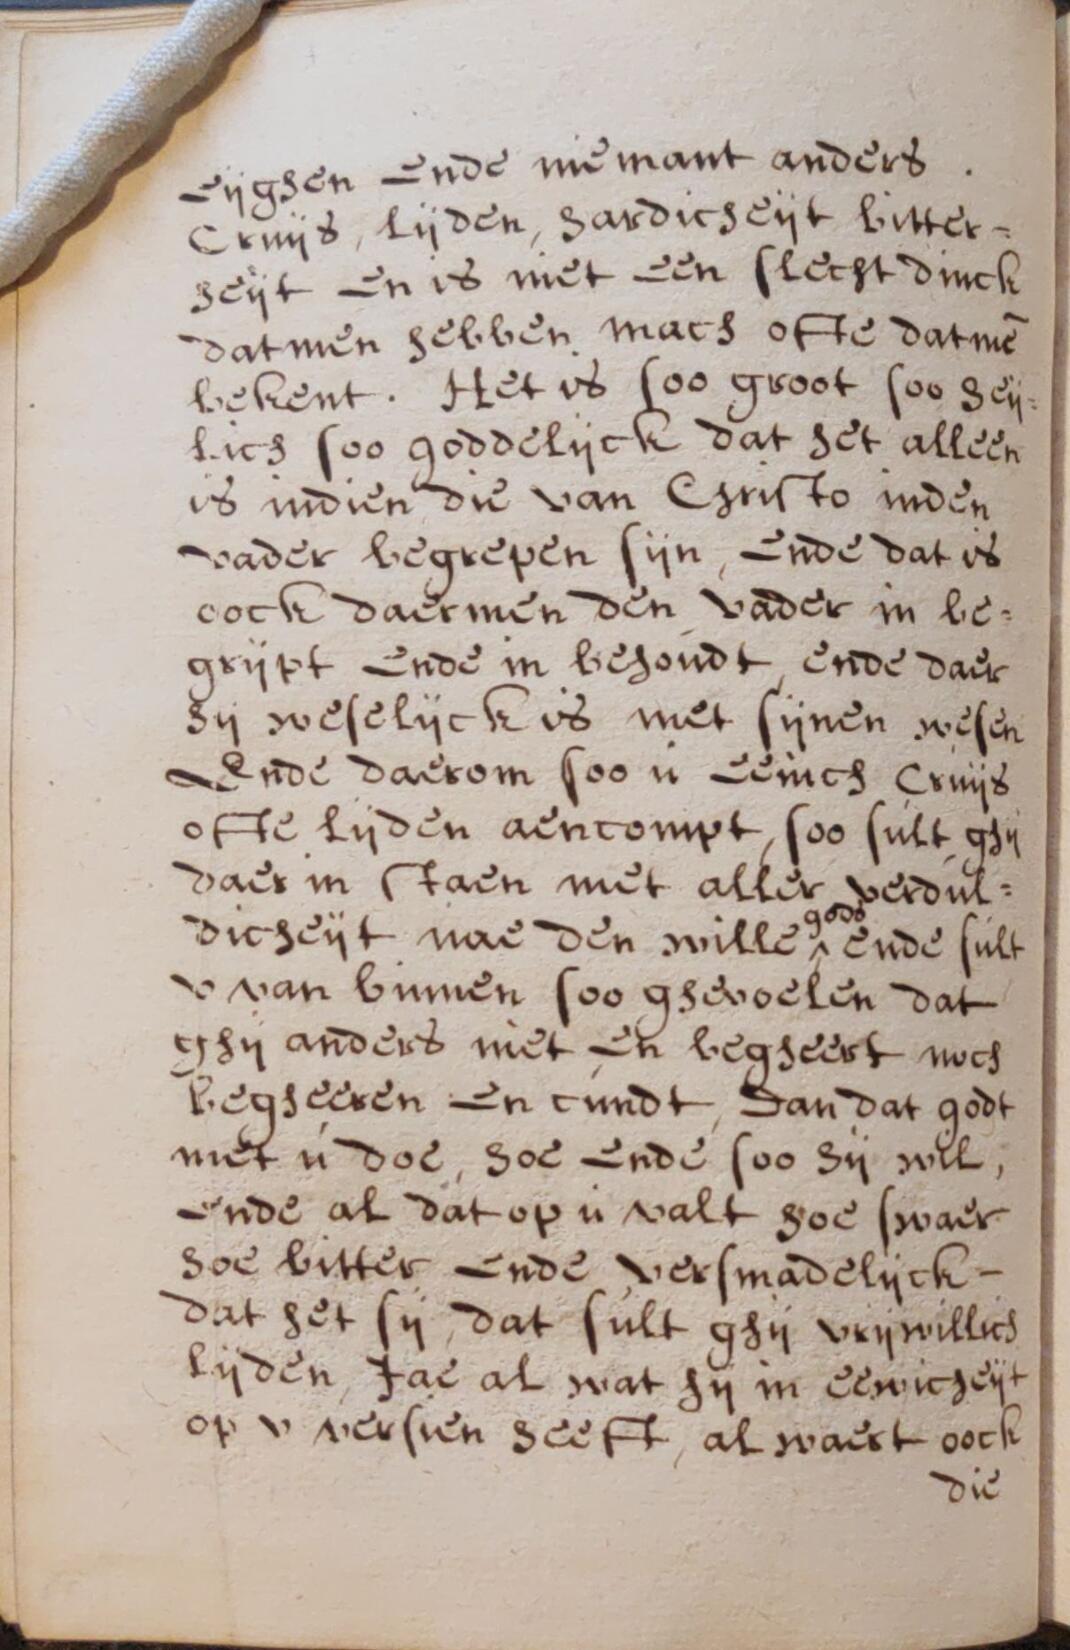 eijghen ende niemant anders .
Cruijs, lijden, hardicheijt bitter=
heijt en is niet een slecht dinck
datmen hebben mach ofte datmē
bekent. Het is soo groot soo heij=
lich soo goddelijck dat het alleen
is indien die van Christo inden
vader begrepen sijn, ende dat is
oock daermen den vader in be=
grijpt ende in behoudt, ende daer
hij weselijck is met sijnen wesen
Ende daerom soo u eenich Cruijs
ofte lijden aencompt, soo sult ghij
daer in staen met aller verdul=
dicheijt nae den wille ^ gods ende sult
v van binnen soo ghevoelen dat
ghij anders niet en begheert noch
begheeren en cundt, Dan dat godt
met u doe, hoe ende soo hij wil,
ende al dat op u valt hoe swaer
hoe bitter ende versmadelijck-
dat het sij, dat sult ghij vrijwillich
lijden, Jae al wat hij in eewicheijt
op v versien heeft, al waert oock
die